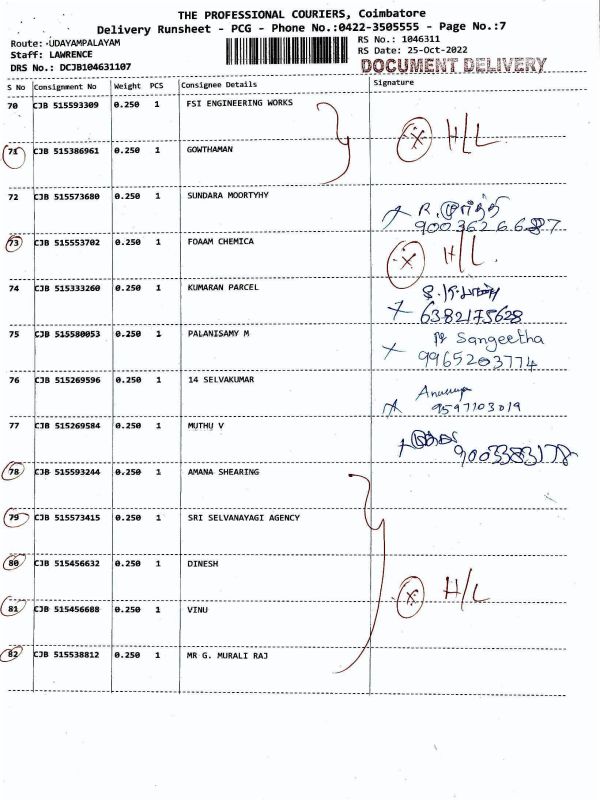 THE PROFESSIONAL COURIERS, Coimbatore
Delivery Runsheet - PCG - Phone No.:0422-3505555 - Page No.:7
Route: -UDAYAMPALAYAM
RS No.: 1046311
Staff: LAWRENCE
RS Date: 25-Oct-2022
DRS No.: DCJB104631107
DOCUMENT DELIVERY
S No Consignment No Weight PCS Consignee Details Signature
70 CJB 515593309 0.250 1 FSI ENGINEERING WORKS
H/L
71 CJB 515386961 0.250 1 GOWTHAMAN
72 CJB 515573680 0.250 1 SUNDARA MOORTYHY
R. மூர்த்தி
9003626687
73 CJB 515553702 0.250 1 FOAAM CHEMICA
H/L.
74 CJB 515333260 0.250 1 KUMARAN PARCEL
6382175628
75 CJB 515580053 0.250 1 PALANISAMY M
Sangeetha
9965203774
76 CJB 515269596 0.250 1 14 SELVAKUMAR
9597103019
77 CJB 515269584 0.250 1 MUTHU V
9003383178
78 CJB 515593244 0.250 1 AMANA SHEARING
79 CJB 515573415 0.250 1 SRI SELVANAYAGI AGENCY
80 CJB 515456632 0.250 1 DINESH
H/L
81 CJB 515456688 0.250 1 VINU
82 CJB 515538812 0.250 1 MR G. MURALI RAJ